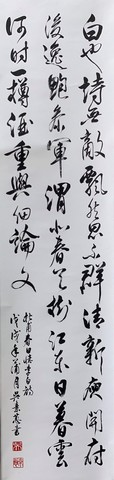 白也詩無敵飄然思不群清新庾開府
俊逸鮑參軍渭北春天樹江東日暮雲
何時一樽酒重與細論文
杜甫春日憶李白詩
戊戌年蒲月